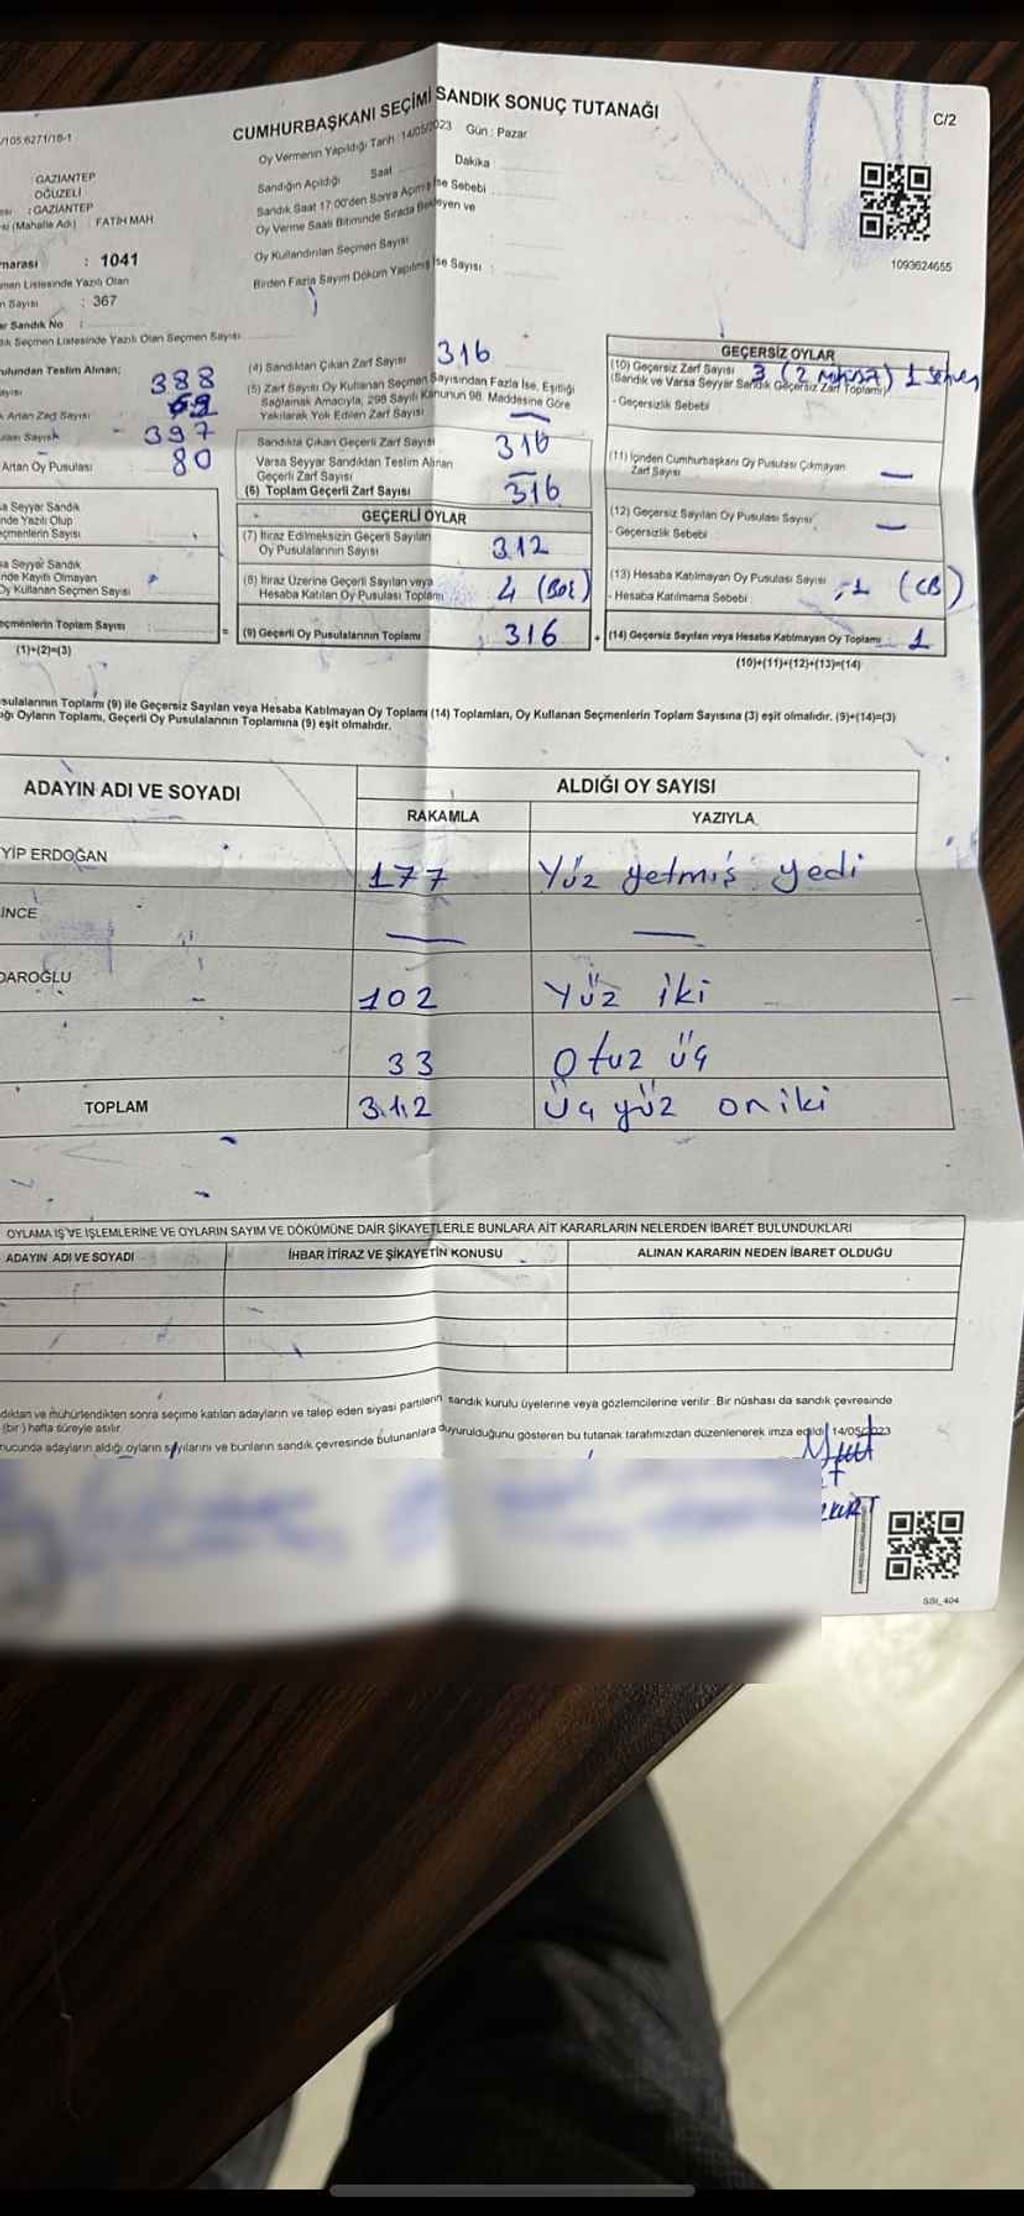 /105.6271/18-1
CUMHURBAŞKANI SEÇİMİ SANDIK SONUÇ TUTANAĞI
C/2
Oy Vermenin Yapıldığı Tarih : 14/05/2023 Gün : Pazar
GAZIANTEP
OĞUZELİ
: GAZIANTEP
(Mahalle Adı) FATİH MAH
Sandığın Açıldığı Saat Dakika
Sandık Saat 17:00'den Sonra Açılmış İse Sebebi
Oy Verme Saati Bitiminde Sırada Bekleyen ve
Oy Kullandırılan Seçmen Sayısı
Birden Fazla Sayım Döküm Yapılmış İse Sayısı :
1093624655
marası : 1041
men Listesinde Yazılı Olan
n Sayısı : 367
ar Sandık No :
Seçmen Listesinde Yazılı Olan Seçmen Sayısı
ulundan Teslim Alınan;
388
Artan Zarf Sayısı
69
397
Artan Oy Pusulası 80
(4) Sandıktan Çıkan Zarf Sayısı 316
(5) Zarf Sayısı Oy Kullanan Seçmen Sayısından Fazla İse, Eşitliği
Sağlamak Amacıyla, 298 Sayılı Kanunun 98. Maddesine Göre
Yakılarak Yok Edilen Zarf Sayısı —
Sandıkta Çıkan Geçerli Zarf Sayısı 316
Varsa Seyyar Sandıktan Teslim Alınan
Geçerli Zarf Sayısı —
(6) Toplam Geçerli Zarf Sayısı 316
GEÇERLİ OYLAR
(7) İtiraz Edilmeksizin Geçerli Sayılan
Oy Pusulalarının Sayısı 312
(8) İtiraz Üzerine Geçerli Sayılan veya
Hesaba Katılan Oy Pusulası Toplamı 4 (Boş)
(9) Geçerli Oy Pusulalarının Toplamı 316
GEÇERSİZ OYLAR
(10) Geçersiz Zarf Sayısı 3 (2
(Sandık ve Varsa Seyyar Sandık Geçersiz Zarf Toplamı)
- Geçersizlik Sebebi
(11) İçinden Cumhurbaşkanı Oy Pusulası Çıkmayan
Zarf Sayısı —
(12) Geçersiz Sayılan Oy Pusulası Sayısı —
- Geçersizlik Sebebi
(13) Hesaba Katılmayan Oy Pusulası Sayısı 1 (CB)
- Hesaba Katılmama Sebebi
+ (14) Geçersiz Sayılan veya Hesaba Katılmayan Oy Toplamı 1
(10)+(11)+(12)+(13)=(14)
sa Seyyar Sandık
nde Yazılı Olup
eçmenlerin Sayısı
sa Seyyar Sandık
nde Kayıtlı Olmayan
Oy Kullanan Seçmen Sayısı
eçmenlerin Toplam Sayısı : =
(1)+(2)=(3)
sulalarının Toplamı (9) ile Geçersiz Sayılan veya Hesaba Katılmayan Oy Toplamı (14) Toplamları, Oy Kullanan Seçmenlerin Toplam Sayısına (3) eşit olmalıdır. (9)+(14)=(3)
ığı Oyların Toplamı, Geçerli Oy Pusulalarının Toplamına (9) eşit olmalıdır.
ADAYIN ADI VE SOYADI
ALDIĞI OY SAYISI
RAKAMLA YAZIYLA
YİP ERDOĞAN 177 Yüz yetmiş yedi
İNCE — —
DAROĞLU 102 Yüz iki
33 Otuz üç
TOPLAM 312 Üç yüz on iki
OYLAMA İŞ VE İŞLEMLERİNE VE OYLARIN SAYIM VE DÖKÜMÜNE DAİR ŞİKAYETLERLE BUNLARA AİT KARARLARIN NELERDEN İBARET BULUNDUKLARI
ADAYIN ADI VE SOYADI İHBAR İTİRAZ VE ŞİKAYETİN KONUSU ALINAN KARARIN NEDEN İBARET OLDUĞU
dıktan ve mühürlendikten sonra seçime katılan adayların ve talep eden siyasi partilerin sandık kurulu üyelerine veya gözlemcilerine verilir. Bir nüshası da sandık çevresinde
(bir) hafta süreyle asılır.
nucunda adayların aldığı oyların sayılarını ve bunların sandık çevresinde bulunanlara duyurulduğunu gösteren bu tutanak tarafımızdan düzenlenerek imza edildi 14/05/2023
SSI_404